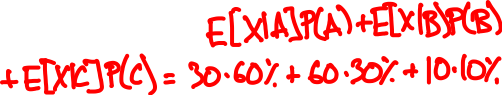 E[X|A]P(A)+E[X|B)P(B)
+E[X|C]P(C) = 30·60% + 60·30% + 10·10%